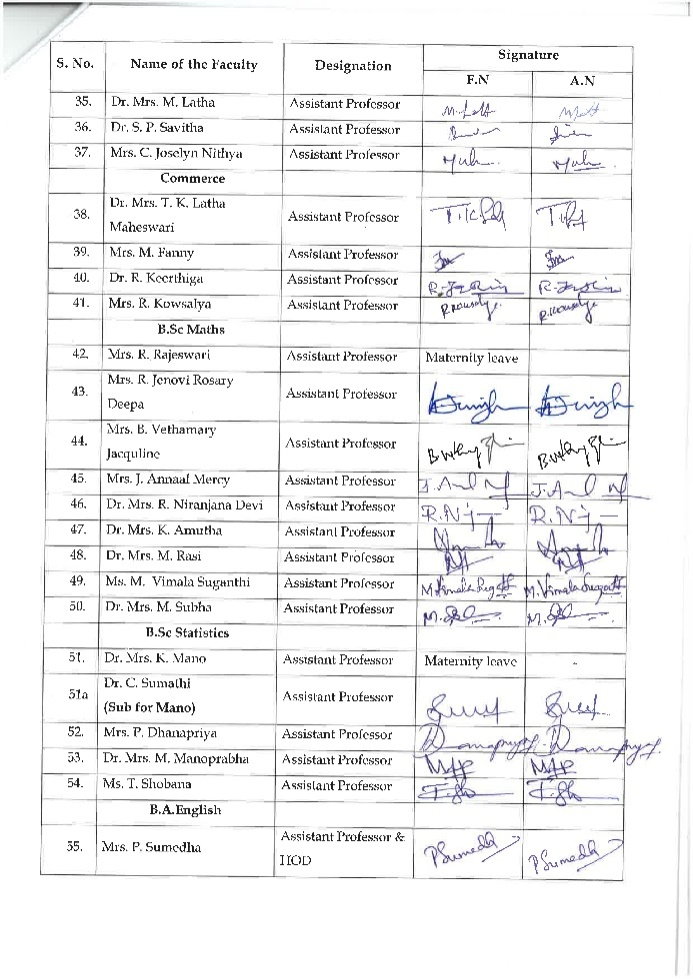 S. No. Name of the Faculty Designation Signature
F.N A.N
35. Dr. Mrs. M. Latha Assistant Professor
36. Dr. S. P. Savitha Assistant Professor
37. Mrs. C. Joselyn Nithya Assistant Professor
Commerce
38. Dr. Mrs. T. K. Latha
Maheswari Assistant Professor
39. Mrs. M. Fanny Assistant Professor
40. Dr. R. Keerthiga Assistant Professor
41. Mrs. R. Kowsalya Assistant Professor R.Kowsalya R.Kowsalya
B.Sc Maths
42. Mrs. R. Rajeswari Assistant Professor Maternity leave
43. Mrs. R. Jenovi Rosary
Deepa Assistant Professor
44. Mrs. B. Vethamary
Jacquline Assistant Professor
45. Mrs. J. Annaal Mercy Assistant Professor
46. Dr. Mrs. R. Niranjana Devi Assistant Professor
47. Dr. Mrs. K. Amutha Assistant Professor
48. Dr. Mrs. M. Rasi Assistant Professor
49. Ms. M. Vimala Suganthi Assistant Professor
50. Dr. Mrs. M. Subha Assistant Professor
B.Sc Statistics
51. Dr. Mrs. K. Mano Assistant Professor Maternity leave -
51a Dr. C. Sumathi
(Sub for Mano) Assistant Professor
52. Mrs. P. Dhanapriya Assistant Professor
53. Dr. Mrs. M. Manoprabha Assistant Professor
54. Ms. T. Shobana Assistant Professor
B.A.English
55. Mrs. P. Sumedha Assistant Professor &
HOD PSumedha PSumedha